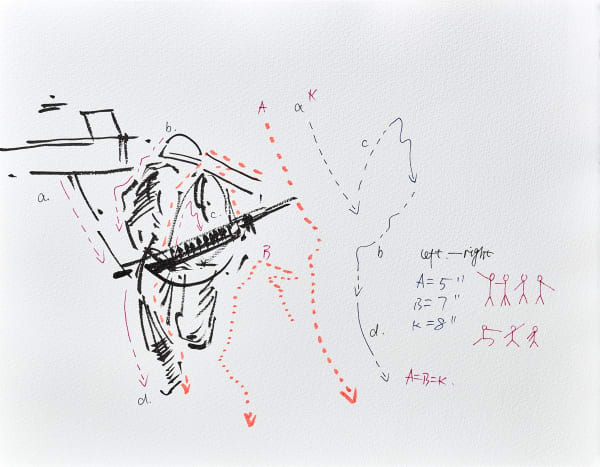 A
K
a
b.
c
a.
c.
B
b
left — right
A = 5 "
B = 7 "
K = 8 "
d.
A=B=K.
d.